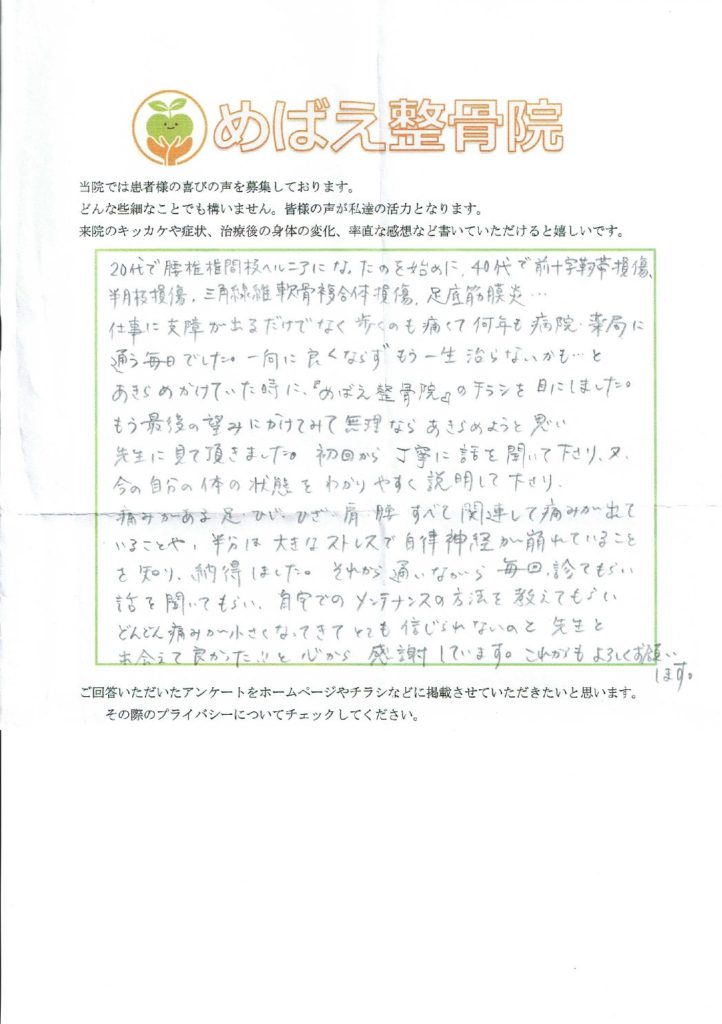 めばえ整骨院
当院では患者様の喜びの声を募集しております。
どんな些細なことでも構いません。皆様の声が私達の活力となります。
来院のキッカケや症状、治療後の身体の変化、率直な感想など書いていただけると嬉しいです。
20代で腰椎椎間板ヘルニアになったのを始めに、40代で前十字靭帯損傷、
半月板損傷、三角線維軟骨複合体損傷、足底筋膜炎…
仕事に支障が出るだけでなく歩くのも痛くて何年も病院・薬局に
通う毎日でした。一向に良くならず もう一生治らないかも…と
あきらめかけていた時に、『めばえ整骨院』のチラシを目にしました。
もう最後の望みにかけてみて無理ならあきらめようと思い
先生に見て頂きました。初回から丁寧に話を聞いて下さり、又、
今の自分の体の状態をわかりやすく説明して下さり、
痛みがある足・ひじ・ひざ・肩・腰 すべて関連して痛みが出て
いることや、半分は大きなストレスで自律神経が崩れていること
を知り、納得しました。それから通いながら 毎回、診てもらい
話を聞いてもらい、自宅でのメンテナンスの方法を教えてもらい
どんどん痛みが小さくなってきてとても信じられないのと 先生と
出会えて良かった!!と心から 感謝しています。これからもよろしくお願い
します。
ご回答いただいたアンケートをホームページやチラシなどに掲載させていただきたいと思います。
その際のプライバシーについてチェックしてください。